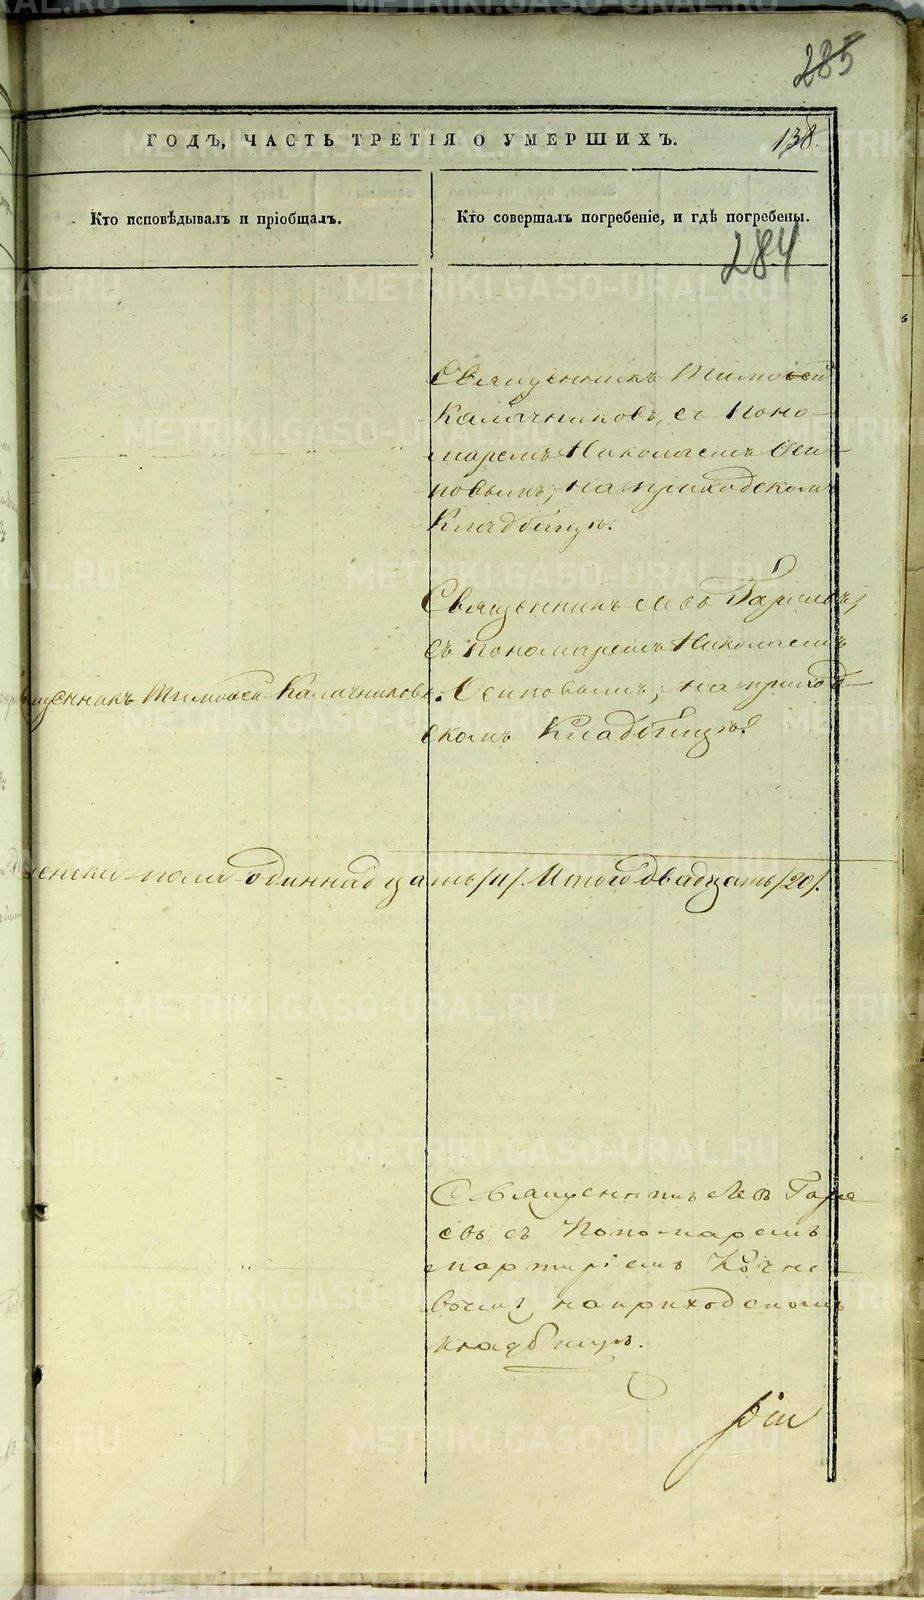 285
ГОДЪ, ЧАСТЬ ТРЕТІЯ О УМЕРШИХЪ.
138.
Кто исповѣдывалъ и пріобщалъ.
Кто совершалъ погребеніе, и гдѣ погребены.
284
Священникъ Тимоѳей
Калачниковъ, съ Поно-
маремъ Николаемъ Оси-
повымъ; на приходскомъ
Кладбищѣ.
Священникъ Левъ
съ пономаремъ Николаемъ
щенникъ Тимоѳей Калачниковъ.
Осиповымъ; на приход-
скомъ Кладбищѣ.
женска пола одиннадцать /11/. Итого двадцать /20/.
Священникъ Левъ
съ Пономаремъ
Мартиріемъ Кочне-
вымъ, на приходскомъ
кладбищѣ.
METRIKI.GASO-URAL.RU